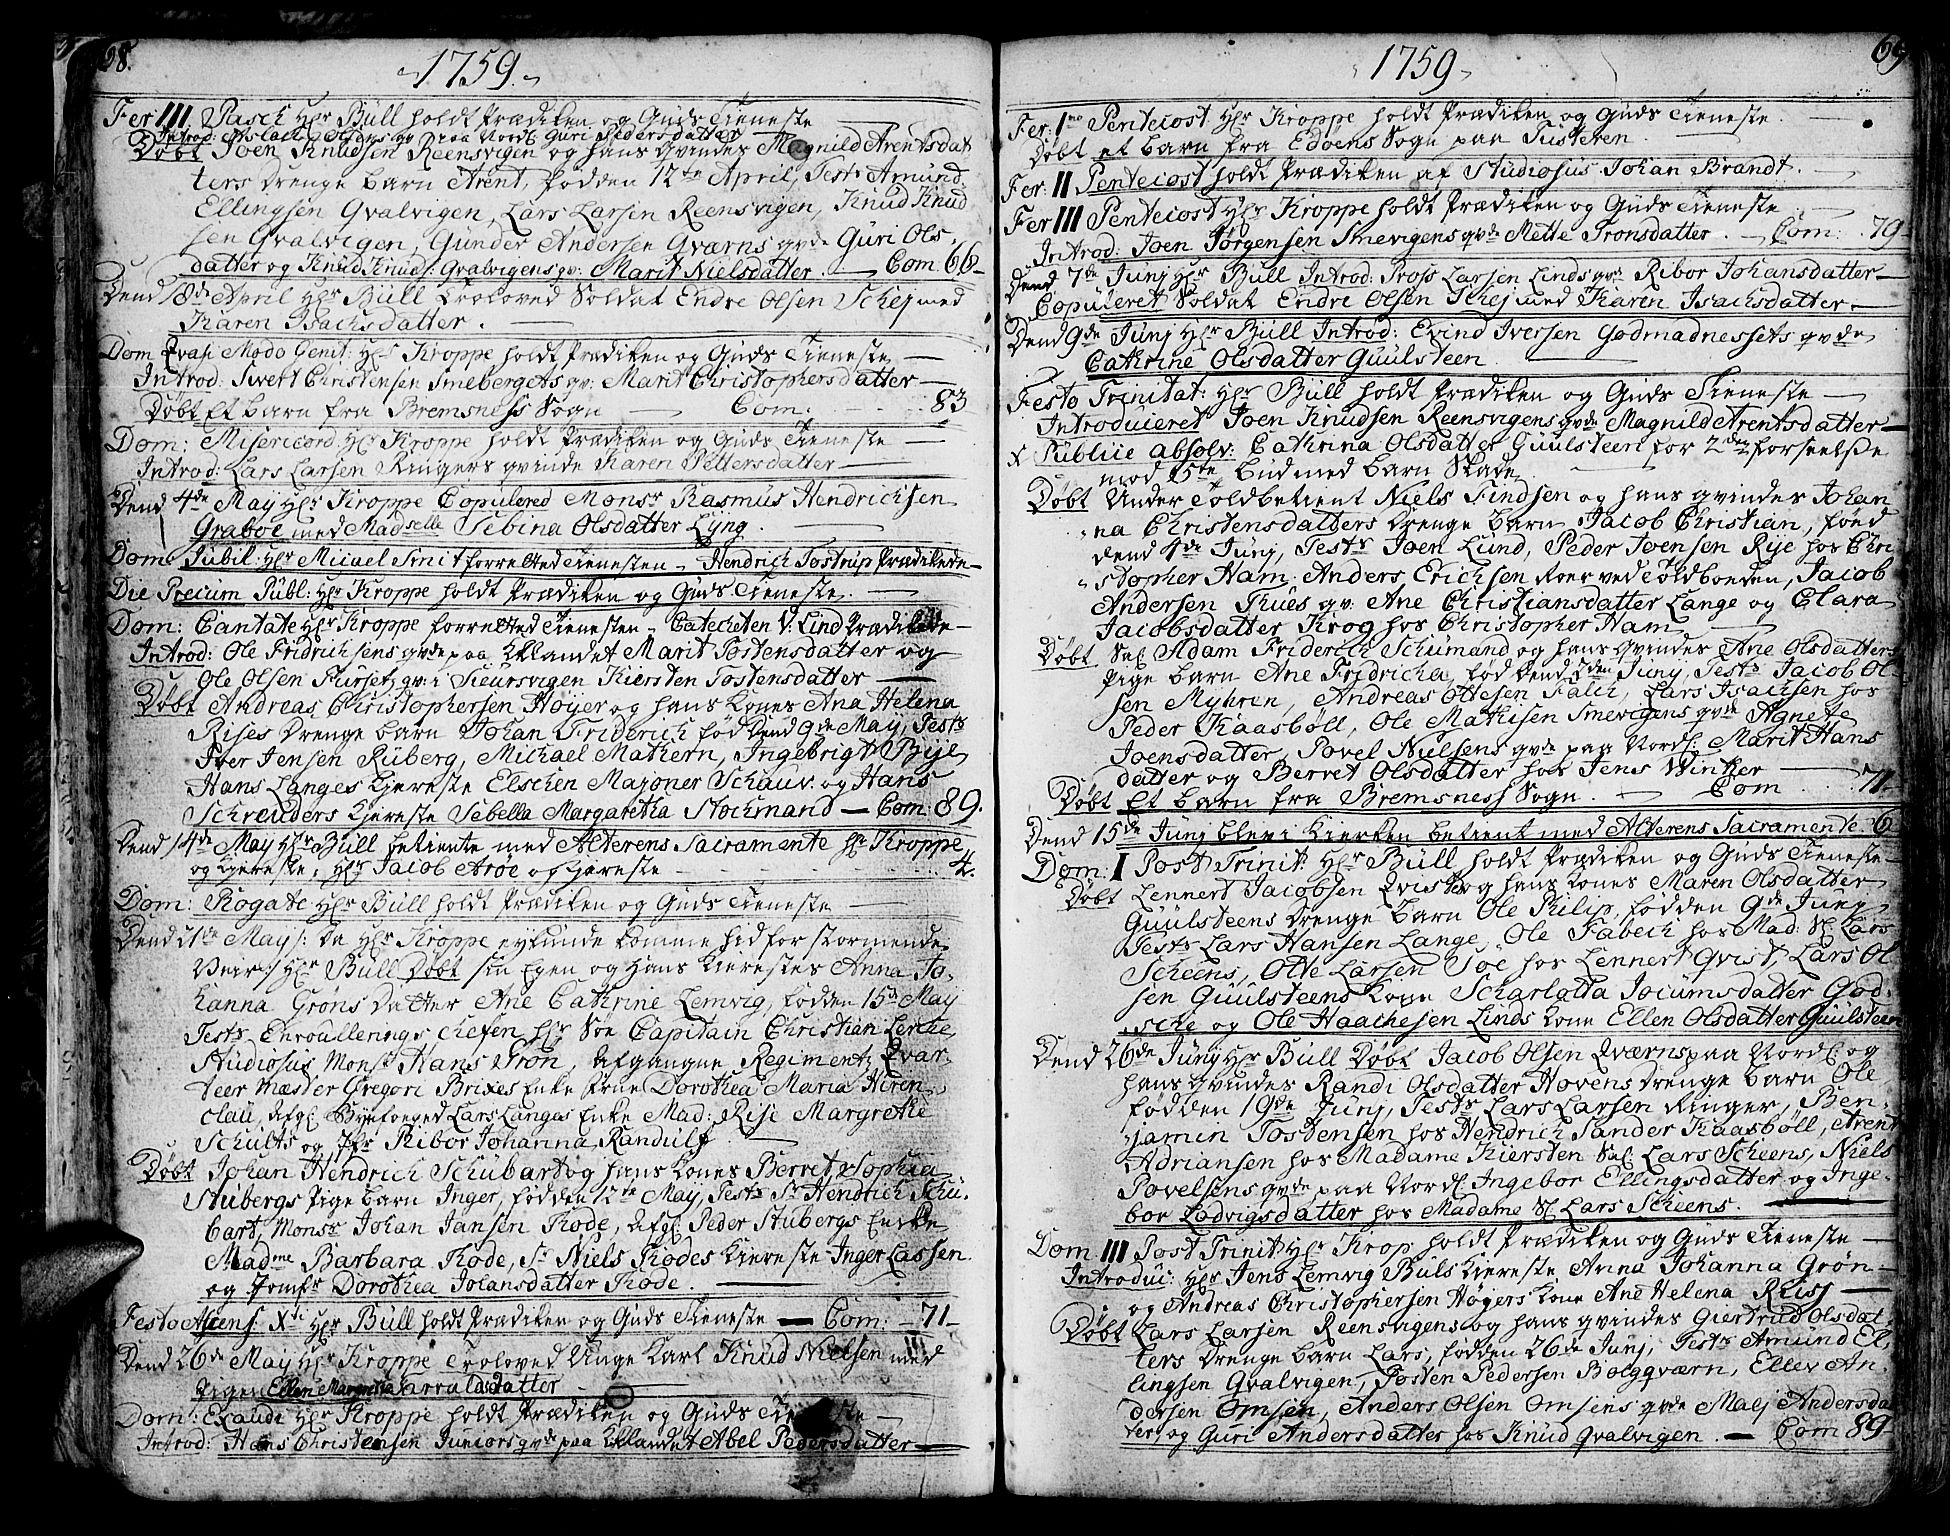 68.
1759.
Fer III Pasch Hr Büll holdt Prædiken og Guds Tieneste
Introd: Aslach Olsens qv paa Nordl. Guri Pedersdatter
Døbt Joen Knudsen Reensvigen og hans qvindes Magnild Arentsdat
ters drenge barn Arent, fødden 12te April, Test: Amund
Ellingsen Qvalvigen, Lars Larsen Reensvigen, Knud Knud
sen Qvalvigen, Gunder Andersen Qværns qvde Guri Ols,
datter og Knud Knud: Qvalvigens qv: Marit Nielsdatter. Com. 66
Dend 18de April Hr Büll Troloved Soldat Endre Olsen Schej med
Karen Isachsdatter.
Dom Qvasi Modo Genit: Hr Kroppe holdt Prædiken og Guds Tieneste
Introd: Sivert Christensen Smebergets qv: Marit Christophersdatter
Døbt Et barn fra Bremsness Sogn Com. 83
Dom: Misericord: Hr Kroppe holdt Prædiken og Guds Tieneste
Introd: Lars Larsen Ringers qvinde Karen Pettersdatter
Dend 4de May Hr Kroppe Copulered Monsr Rasmus Hendrichsen
Graboe med Madselle Sebina Olsdatter Lyng.
Dom Jubil: Hr Micael Smit forretted Tienesten, Hendrich Tostrup Prædikede
Die Precum Publ: Hr Kroppe holdt Prædiken og Guds Tieneste.
Dom: Cantate Hr Kroppe forretted Tienesten, Catecheten V: Lind Prædikede
Introd: Ole Fridrichsens qvde paa Ellandet Marit Tostensdatter og
Ole Olsen Furset, qv: i Sieursvigen Kiersten Tostensdatter
Døbt Andreas Christophersen Høyer og hans Kones Ana Helena
Rises drenge barn Johan Friderich fød Dend 9de Maij, Tests
Iver Jensen Ruberg, Michael Mathern, Ingebrigt Bye
Hans Langes Kiereste Elschen Majoner Schauv. og Hans
Schreuders Kiereste Sebella Margaretha Stochmand Com: 89.
Dend 14de May Hr Büll betiente med Alterens Sacramente Hr Kroppe
og Kiereste, Hr Jacob Arøe og Kiereste 4.
Dom: Rogate Hr Büll holdt Prædiken og Guds Tieneste
Dend 21de May /: da Hr Kroppe ey kunde komme hid for stormende
Veir :/ Hr Büll Døbt sin Egen og Hans Kierestes Anna Jo-
hanna Grøns datter Ane Cathrine Lemvig, fødden 15de May
Tests Enroullerings Chefen Hr Søe Capitain Christian Lerche
Studiosus Monsr Hans Grøn, Afgangne Regiment: Qvar-
teer Mæster Gregori Brixes Enke Frue Dorothea Maria Hiren,
clau, Afg: Byefoeged Lars Langas Enke Mad: Rise Margrethe
Schults og Jfr Ribor Johanna Randulf
Døbt Johan Hendrich Schubart og hans Kones Berret Sophia
Stubergs Pige barn Inger, fødden 11te May, Tests Sr Hendrich Schu-
bart, Monsr Johan Jansen Rode, Afg: Peder Stubergs Encke
Madme Barbara Rode, Sr Niels Rodes Kiereste Inger Lassen
og Jomfr Dorothea Johansdatter Rode.
Festo Ascens: Xti Hr Büll holdt Prædiken og Guds Tieneste Com: 71
Dend 26de May Hr Kroppe Troloved Unge Karl Knud Nielsen med
Pigen Ellen Margretha datter
Dom: Exaudi Hr Kroppe holdt Prædiken og Guds Tieneste
Introd: Hans Christensen Juniors qvde paa Ellandet Abel Pedersdatter
69
1759
Fer: 1mo Pentecost Hr Kroppe holdt Prædiken og Guds Tieneste.
Døbt et barn fra Edøens Sogn paa Tusteren
Fer: II Pentecost holdt Prædiken af Studiosus Johan Brandt.
Fer III Pentecost Hr Kroppe holdt Prædiken og Guds Tieneste
Introd: Joen Jørgensen Smevigens qvde Mette Tronsdatter. Com: 79
Dend 7de Junj Hr Büll Introd: Tross Larsen Linds qv: Ribor Johansdatter
Copuleret Soldat Endre Olsen Schej med Karen Isachsdatter
Dend 9de Junj Hr Büll Introd: Evind Iversen Godmadnessets qvde
Cathrine Olsdatter Guulsteen
Festo Trinitat: Hr Büll holdt Prædiken og Guds Tieneste
Introduceret Joen Knudsen Reensvigens qvde Magnild Arentsdatter
x Publice absolv: Cathrina Olsdatter Guulsteen for 2den forseelse
mod 6te bud med barn Skade
Døbt Under Toldbetient Niels Findsen og hans qvindes Johan
na Christensdatters drenge barn Jacob Christian, fød
dend 4de Junj, Tests Joen Lund, Peder Joensen Rye hos Chri
stopher Ham, Anders Erichsen Roer ved Toldboden, Jacob
Andersen Thues qv: Ane Christiansdatter Lange og Clara
Jacobsdatter Krog hos Christopher Ham
Døbt Sal: Adam Friderich Schumand og hans qvindes Ane Olsdatters
Pige barn Ane Fridricha, fød dend 7den Junj, Tests Jacob Ol
sen Myhren, Andreas Ottesen Falch, Lars Isachsen hos
Peder Kaasbøll, Ole Mathisen Smevigens qvde Agnete
Joensdatter, Povel Nielsens qvde paa Nordl: Marit Hans
datter og Berret Olsdatter hos Jens Winther
Døbt Et barn fra Bremsness Sogn. Com 71.
Dend 15de Junj blev i Kierken betient med Alterens Sacramente 6
Dom: I Post Trinit: Hr Büll holdt Prædiken og Guds Tieneste
Døbt Lennert Jacobsen Qvist og hans Kones Maren Olsdatter
Guulsteens drenge barn Ole Philip, fødden 9de Junj
Tests Lars Hansen Lange, Ole Fabech hos Mad: Sl Lars
Scheens, Otte Larsen Soe hos Lennert Qvist, Lars Ol
sen Guulsteens Kone Scharlatta Jocumsdatter God-
sche og Ole Haachesen Linds Kone Ellen Olsdatter Guulsteen
Dend 26de Junj Hr Büll Døbt Jacob Olsen Qværns paa Nordl: og
hans qvindes Randi Olsdatter Hovens drenge barn Ole
fødden 19de Junj, Tests Lars Larsen Ringer, Ben-
jamin Tostensen hos Hendrich Sander Kaasbøll, Arent
Adriansen hos Madame Kiersten Sal: Lars Scheens, Niels
Povelsens qvde paa Nordl: Ingebor Ellingsdatter og Inge-
bor Lodvigsdatter hos Madame Sl Lars Scheens.
Dom III Post Trinit Hr Krop holdt Prædiken og Guds Tieneste
Introduc: Hr Jens Lemvig Büls Kiereste Anna Johanna Grøn
og Andreas Christophersen Høyers Kone Ane Helena Reiss
Døbt Lars Larsen Reensvigens og hans qvindes Giertrud Olsdat
ters drenge barn Lars, fødden 26de Junj, Tests Amund El,
lingsen Qvalvigen, Tosten Pedersen Bolgqværn, Ellev An,
dersen Omsen, Anders Olsen Omsens qvde Malj Andersdat
ter og Guri Andersdatter hos Knud Qvalvigen. Com 89